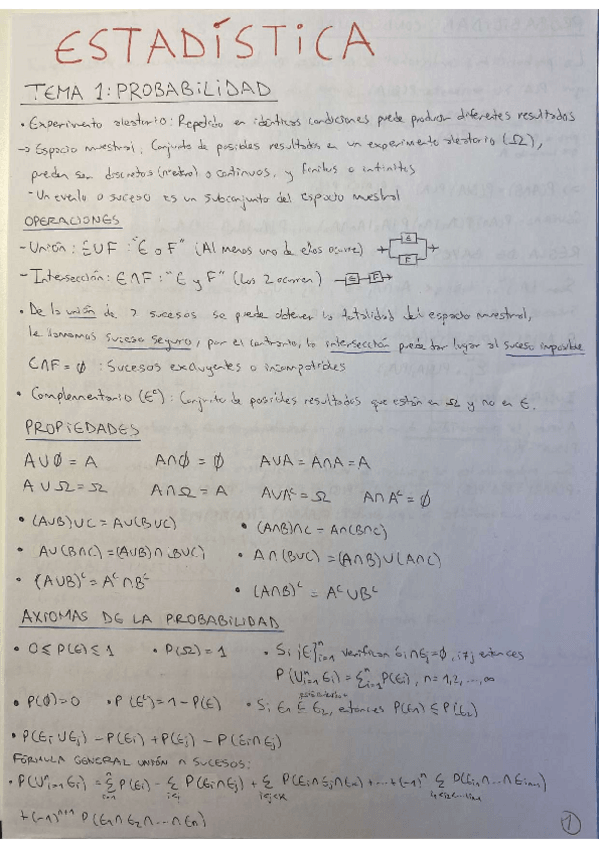 ESTADÍSTICA
TEMA 1: PROBABILIDAD
• Experimento aleatorio: Repetido en idénticas condiciones puede producir diferentes resultados
→ Espacio muestral: Conjunto de posibles resultados en un experimento aleatorio (Ω),
pueden ser discretos (nº entero) o continuos, y finitos o infinitos
- Un evento o suceso es un subconjunto del espacio muestral
OPERACIONES
- Unión: E∪F : "E o F" (Al menos uno de ellos ocurre) E F
- Intersección: E∩F : "E y F" (Los 2 ocurren) E F
• De la unión de 2 sucesos se puede obtener la totalidad del espacio muestral,
le llamamos suceso seguro, por el contrario, la intersección puede dar lugar al suceso imposible
E∩F = ∅ : Sucesos excluyentes o incompatibles
• Complementario (Eᶜ) : Conjunto de posibles resultados que están en Ω y no en E.
PROPIEDADES
A∪∅ = A A∩∅ = ∅ A∪A = A∩A = A
A∪Ω = Ω A∩Ω = A A∪Aᶜ = Ω A∩Aᶜ = ∅
• (A∪B)∪C = A∪(B∪C) • (A∩B)∩C = A∩(B∩C)
• A∪(B∩C) = (A∪B)∩(B∪C) • A∩(B∪C) = (A∩B)∪(A∩C)
• (A∪B)ᶜ = Aᶜ∩Bᶜ • (A∩B)ᶜ = Aᶜ∪Bᶜ
AXIOMAS DE LA PROBABILIDAD
• 0 ≤ P(E) ≤ 1 • P(Ω) = 1 • Si {E}ⁿᵢ₌₁ verifican Eᵢ∩Eⱼ = ∅, i≠j entonces
P(∪ⁿᵢ₌₁ Eᵢ) = Σⁿᵢ₌₁ P(Eᵢ), n = 1,2, ..., ∞
• P(∅) = 0 • P(Eᶜ) = 1 - P(E) • Si E₁ ⊆ E₂, entonces P(E₁) ≤ P(E₂)
• P(Eᵢ∪Eⱼ) = P(Eᵢ) + P(Eⱼ) - P(Eᵢ∩Eⱼ)
FÓRMULA GENERAL UNIÓN N SUCESOS:
• P(∪ⁿᵢ₌₁ Eᵢ) = Σⁿᵢ₌₁ P(Eᵢ) - Σᵢ<ⱼ P(Eᵢ∩Eⱼ) + Σᵢ<ⱼ<ₖ P(Eᵢ∩Eⱼ∩Eₖ) + ... + (-1)ⁿ Σ P(Eᵢ₁∩...∩Eᵢₙ₋₁)
+ (-1)ⁿ⁺¹ P(E₁∩E₂∩...∩Eₙ)
1